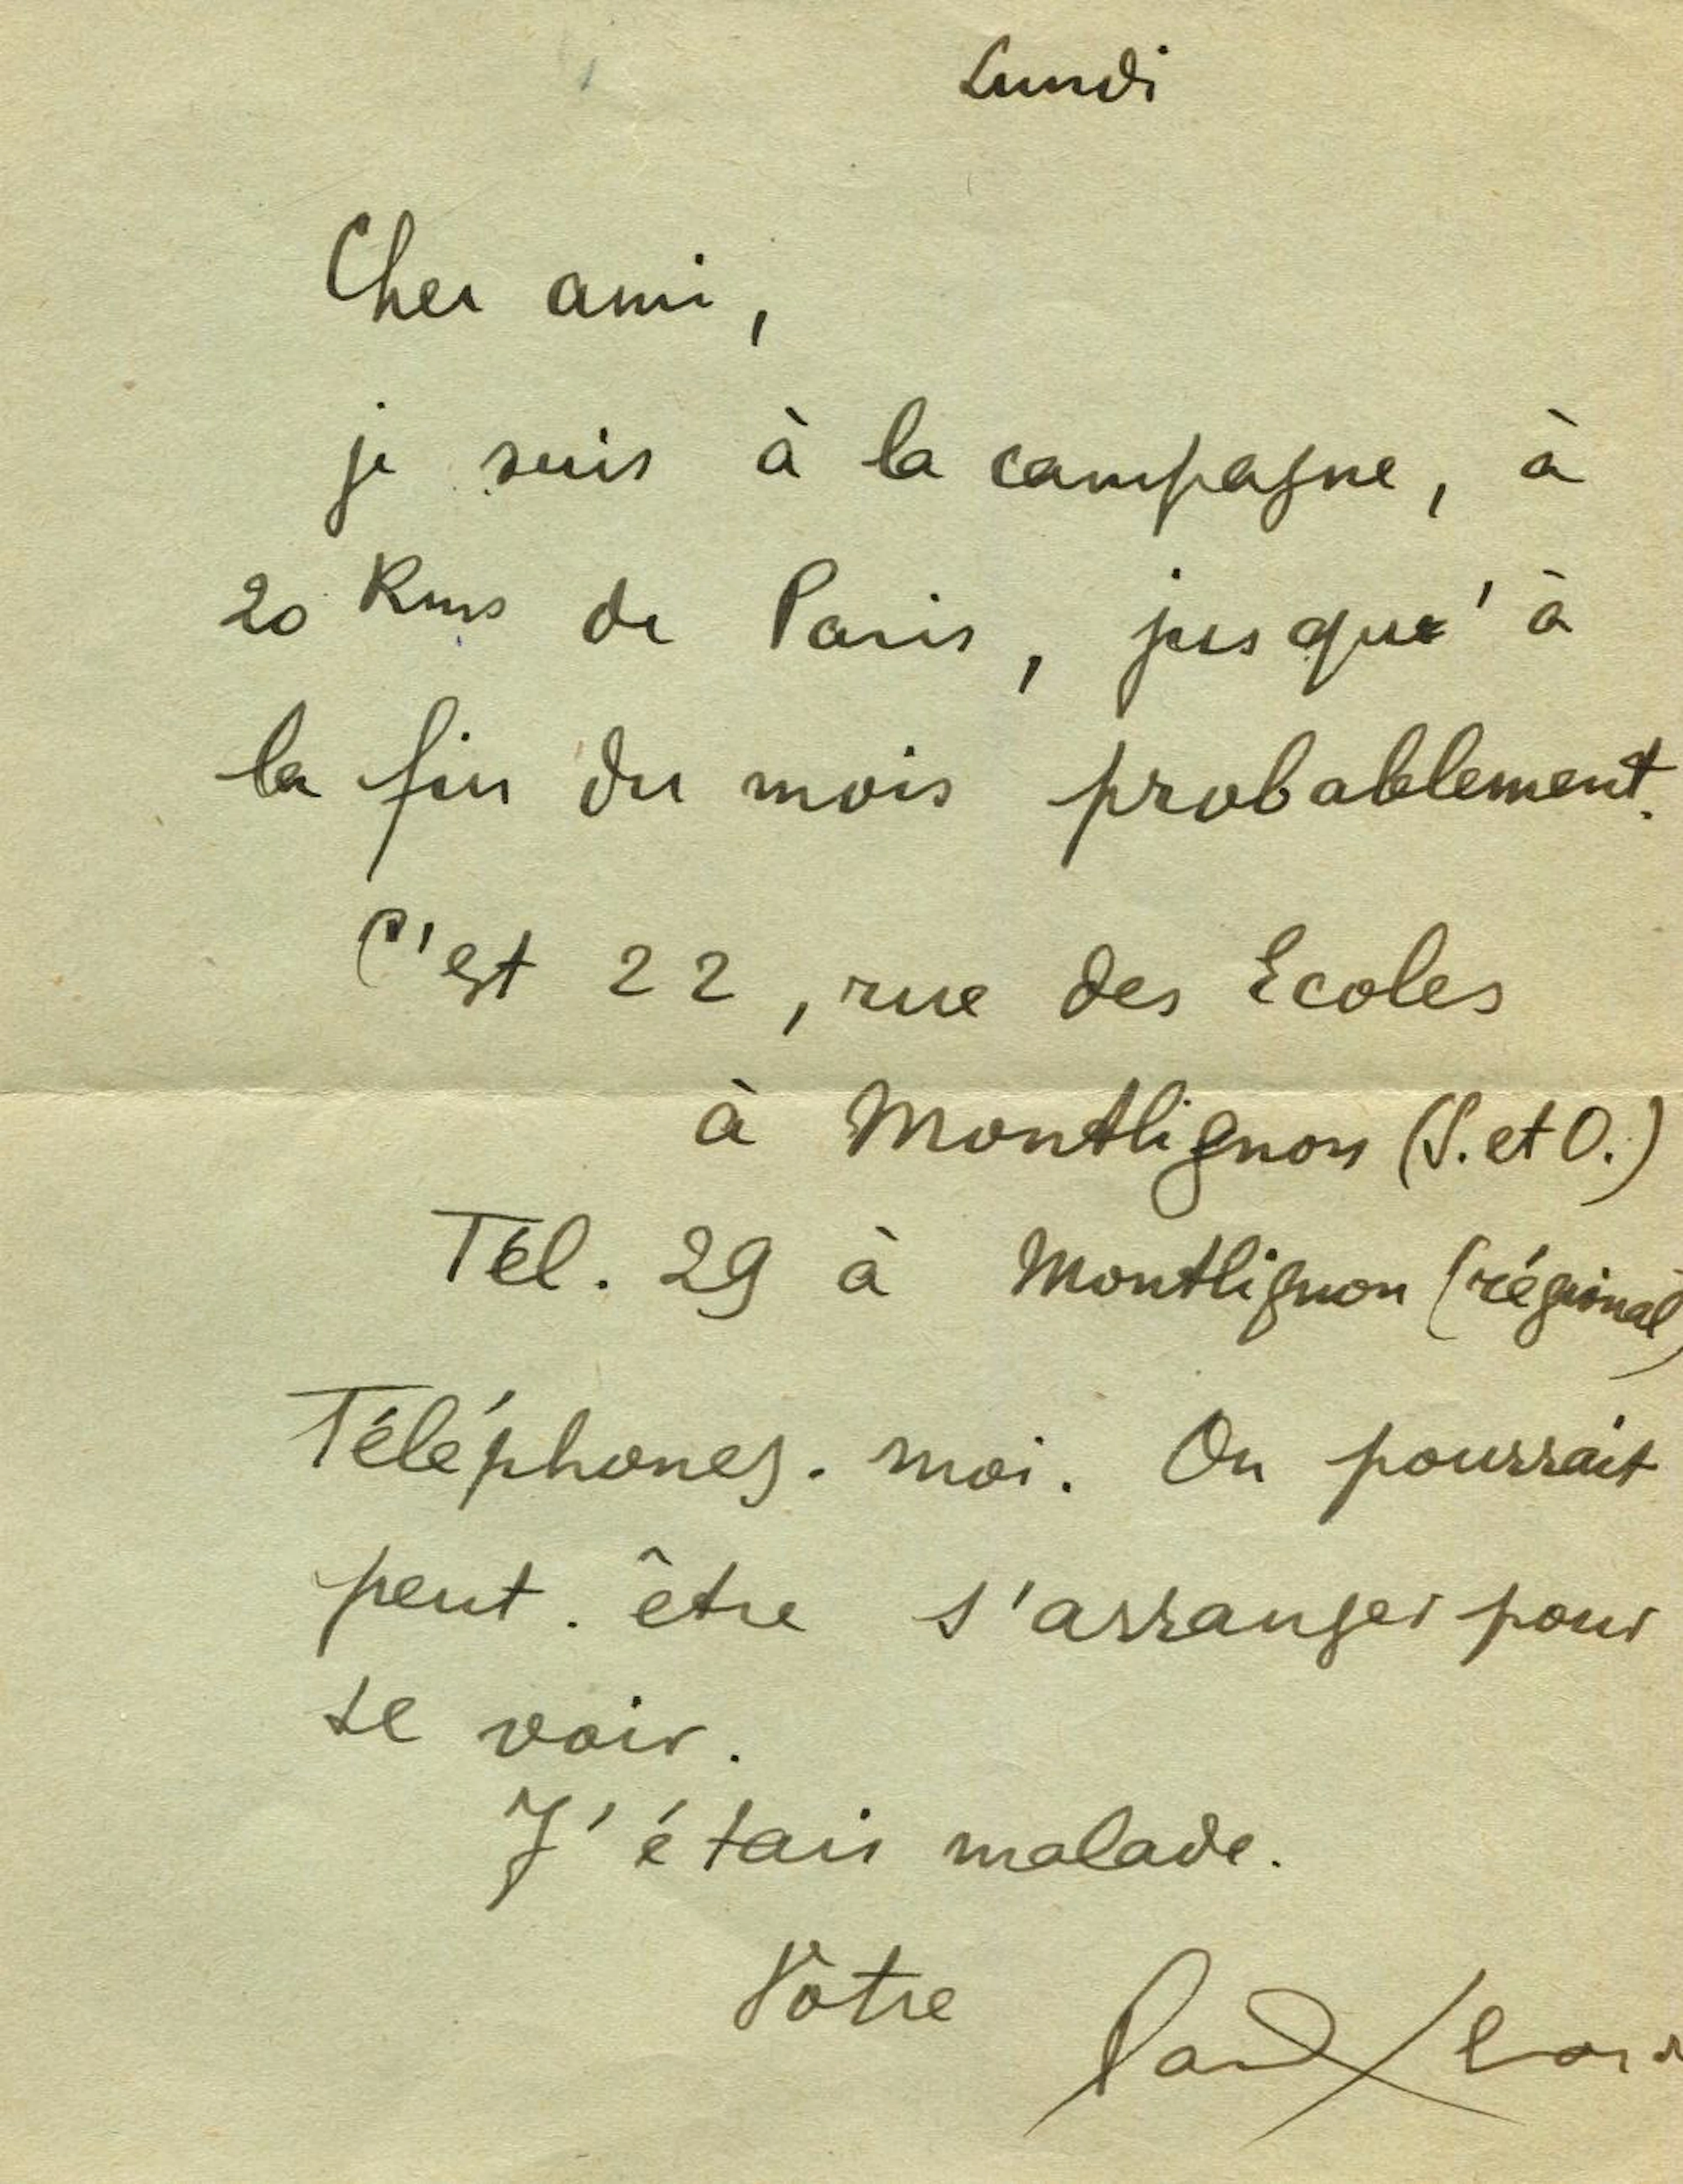 Lundi
Cher ami,
je suis à la campagne, à
20 Kms de Paris, jusqu'à
la fin du mois probablement.
C'est 22, rue des Ecoles
à Montlignon (S. et O.)
Tél. 29 à Montlignon (régional)
Téléphonez-moi. On pourrait
peut-être s'arranger pour
se voir.
J'étais malade.
Vôtre Paul